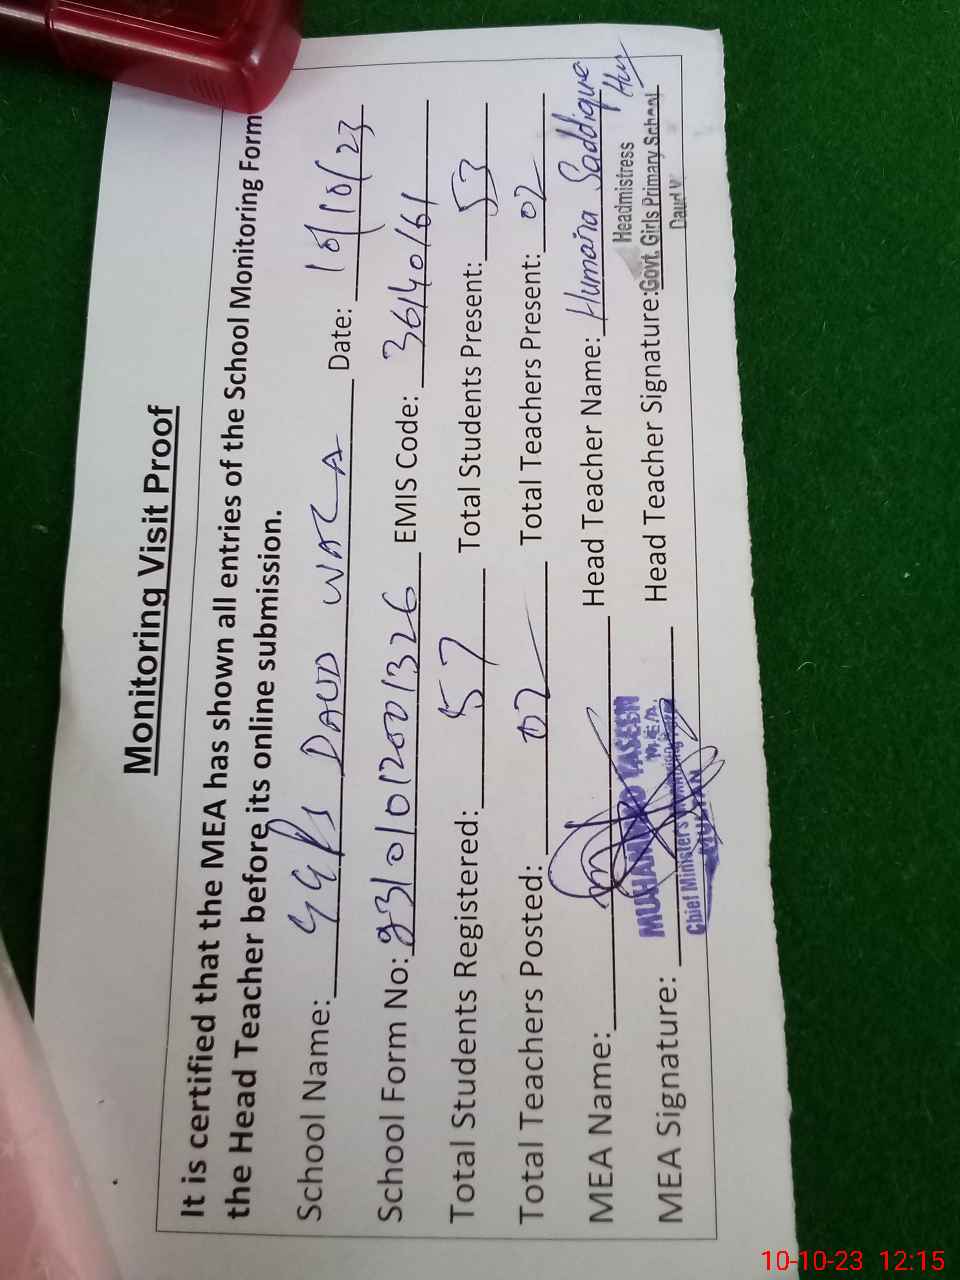 Monitoring Visit Proof
It is certified that the MEA has shown all entries of the School Monitoring Form
the Head Teacher before its online submission.
School Name: GGPS DAUD WALA Date: 10/10/23
School Form No: 23101012001326 EMIS Code: 36140161
Total Students Registered: 57 Total Students Present: 53
Total Teachers Posted: 02 Total Teachers Present: 02
MEA Name: Head Teacher Name: Humaira Saddique
MUHAMMAD YASEEN
M.E.A.
Headmistress
MEA Signature: Head Teacher Signature: Govt. Girls Primary School
Chief Ministers Monitoring
MULTAN
Daud
10-10-23 12:15